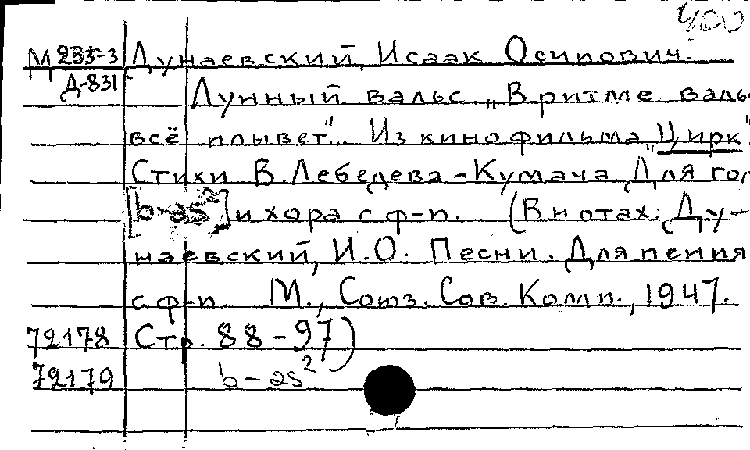 400
М 235-3 Дунаевский, Исаак Осипович.
Д-831
Лунный вальс „В ритме валь
всё плывет". Из кинофильма „Цирк"
Стихи В. Лебедева-Кумача Для гол
[b-as²] и хора с ф-п. (В нотах: Ду-
наевский, И.О. Песни. Для пения
с ф-п. М., Союз. Сов. Комп., 1947.
72178 Стр. 88-97)
72179 b-as²